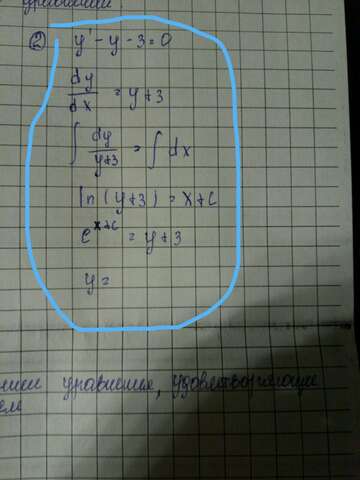 уравнения
② y' - y - 3 = 0
dy/dx = y+3
∫ dy/y+3 = ∫ dx
ln (y+3) = x+c
e^x+c = y+3
y =
уравнения, удовлетворяющие